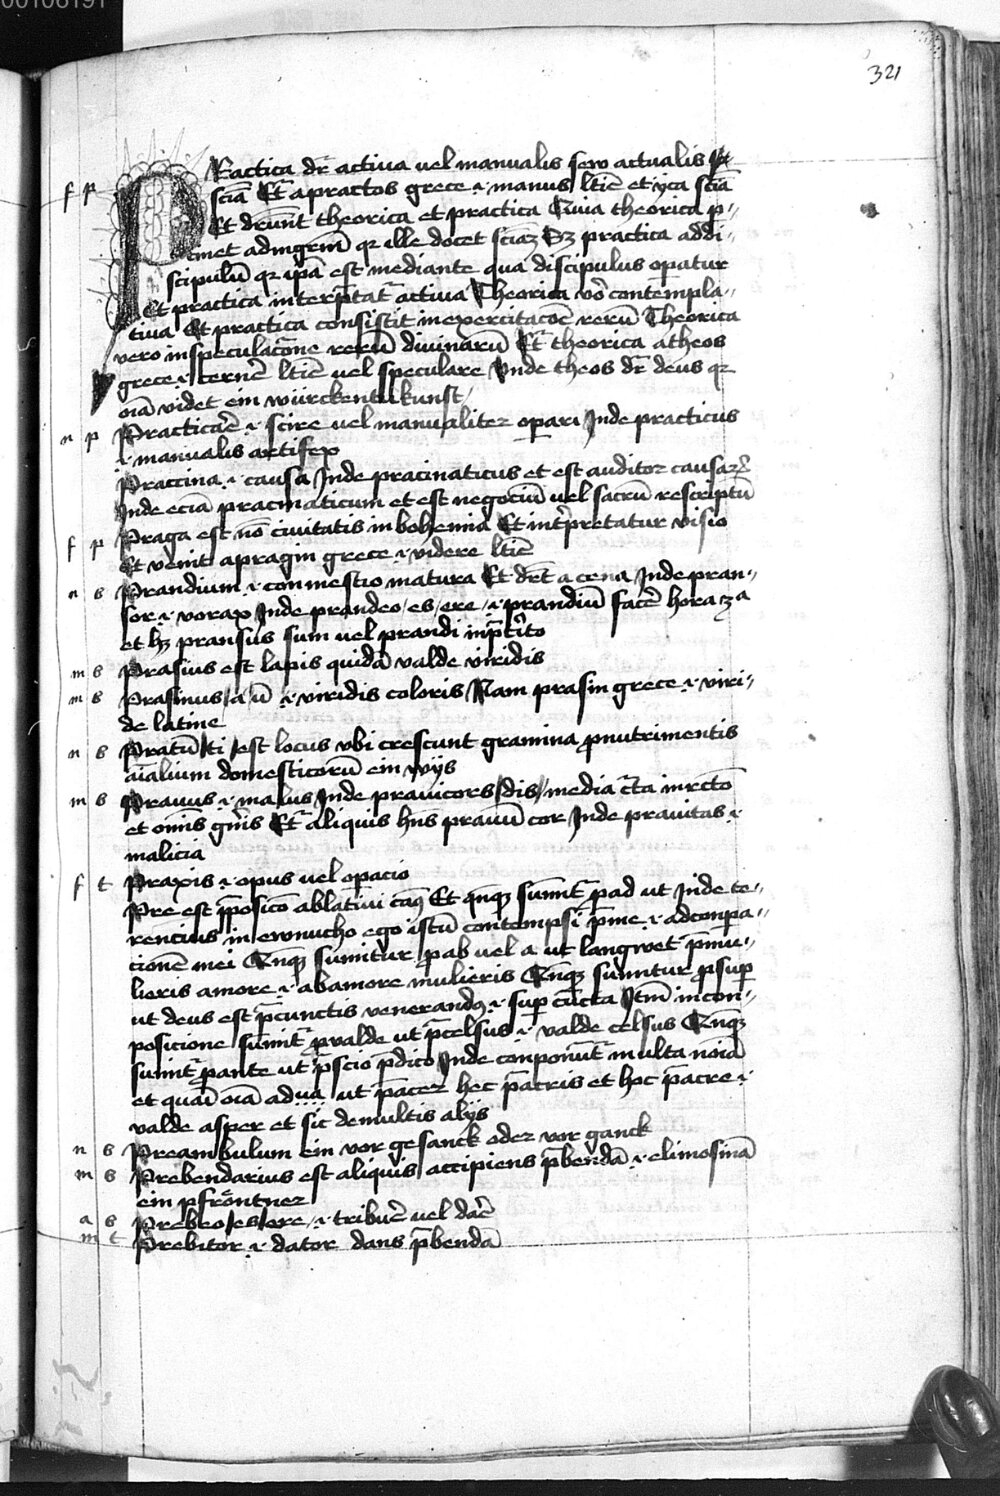 00106191
321
f p PRactica dr̄ actiua uel manualis sew actualis
sciā Et̄ apractos grece .i. manus ltīe et yca sciā
Et drūnt theorica et practica Quia theorica p-
tinet ad ingrem̄ qr ille docet sciaz Sz practica addi-
scipulū qr ip̄a est mediante qua discipulus opatur
Et practica interp̄tat̄ actiua Theorica vo̊ contempla-
tiua Et practica consistit inexercitac̄oe rerū Theorica
vero inspeculac̄one rerū diuinarū Et̄ theorica atheos
grece .i. cernē ltīe uel speculare Vnde theos dr̄ deus qr
oīa videt ein würckentu kunst
n p Practicar̄e .i. scire uel manualiter operari Inde practicus
.i. manualis artifex
Praccina .i. causa Inde pracinaticus et est auditor causaꝝ
Inde eciā pracmaticum et est negociū uel sacrū rescriptū
f p Praga est nō ciuitatis in bohemia Et int̄pretatur visio
Et venit apragin grece .i. videre ltīe
n s Prandium .i. conmestio matura Et drt̄ a cena Inde pran-
sor .i. vorax Inde prandeo/es/ere .i. prandiū facē hora 3a
et hz pransus sum uel prandi inp̄tito
m s Prasius est lapis quidā valde viridis
m s Prasinus/a/ū .i. viridis coloris Nam prasin grece .i. viri-
de latine
n s Pratū/ti/est locus vbi crescunt gramina pnutrimentis
aīalium domesticorū ein wys
m s Prauus .i. malus Inde prauicors/dis/media c̄ta in rc̄to
et om̄is gn̄is Et̄ aliquis hn̄s prauū cor Inde prauitas .i.
malicia
f t Praxis .i. opus uel opacio
Pre est p̄posic̄o ablatiui caꝰ Et qn̄qz sumit̄ pad ut Inde te-
rencius in ewnucho ego istū contempsi p̄me .i. adconpa-
cionē mei Qn̄qz sumitur pab uel a ut langwet p̄mu-
lieris amore .i. abamore mulieris Qn̄qz sumitur psup
ut deus est p̄cunctis venerandꝰ .i. sup cūcta Itm̄ in con-
posicione sumit̄ pvalde ut p̄celsus .i. valde celsus Qn̄qz
sumit̄ pante ut p̄scio p̄dico Inde conponūt̄ multa nōia
et quāi oīa adiua ut p̄acer hec p̄acris et hoc p̄acre .i.
valde asper et sic de multis alijs
n s Preambulum ein vor gesanck oder vor ganck
m s Prebendarius est aliquis accipiens p̄bendā .i. elimosinā
ein pfröntner
a s Prebeo/es/ere .i. tribuē uel darē
m t Prebitor .i. dator dans p̄bendā